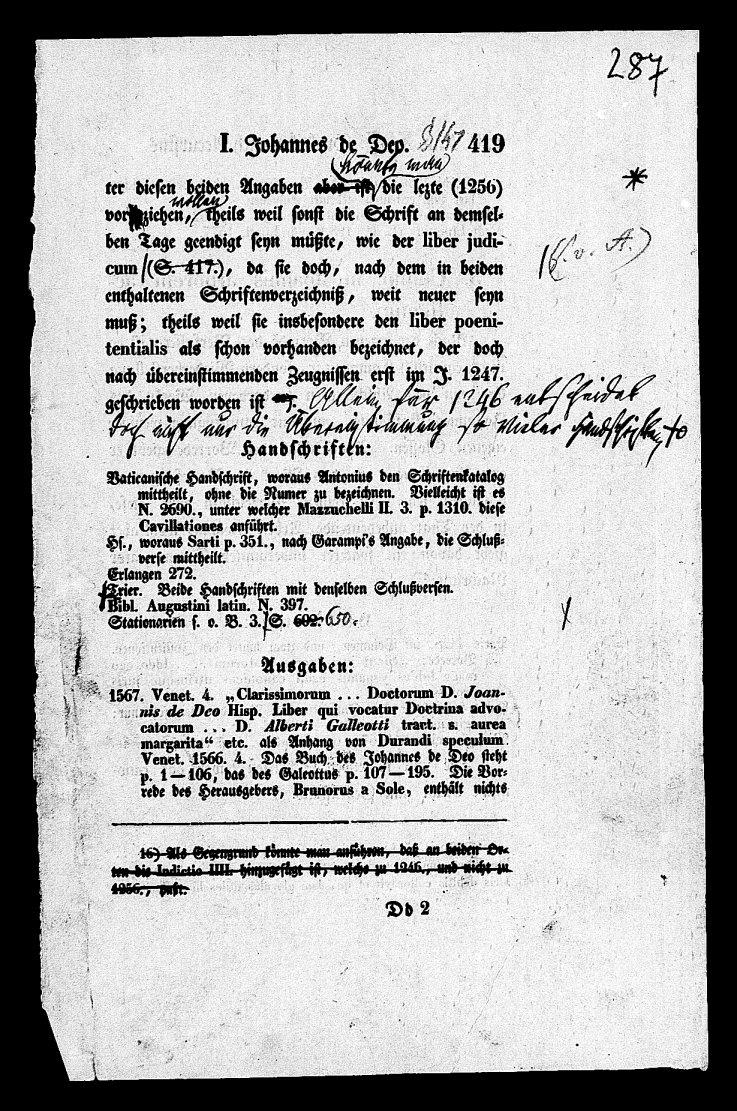 287
I. Johannes de Deo. 419
könnte man
ter diesen beiden Angaben aber ist die lezte (1256)
wollen
vorzuziehen, theils weil sonst die Schrift an demsel-
ben Tage geendigt seyn müßte, wie der liber judi-
16 (s. v. A.)
cum (S. 417.), da sie doch, nach dem in beiden
enthaltenen Schriftenverzeichniß, weit neuer seyn
muß; theils weil sie insbesondere den liber poeni-
tentialis als schon vorhanden bezeichnet, der doch
nach übereinstimmenden Zeugnissen erst im J. 1247.
geschrieben worden ist. Allein für 1246 entscheidet
doch nicht nur die Übereinstimmung so vieler Handschriften,
Handschriften:
Vaticanische Handschrift, woraus Antonius den Schriftenkatalog
mittheilt, ohne die Numer zu bezeichnen. Vielleicht ist es
N. 2690., unter welcher Mazzuchelli II. 3. p. 1310. diese
Cavillationes anführt.
Hs., woraus Sarti p. 351., nach Garampi's Angabe, die Schluß-
verse mittheilt.
Erlangen 272.
Trier. Beide Handschriften mit denselben Schlußversen.
Bibl. Augustini latin. N. 397.
Stationarien s. o. B. 3. S. 602. 650.
Ausgaben:
1567. Venet. 4. „Clarissimorum ... Doctorum D. Joan-
nis de Deo Hisp. Liber qui vocatur Doctrina advo-
catorum ... D. Alberti Galleotti tract. s. aurea
margarita“ etc. als Anhang von Durandi speculum
Venet. 1566. 4. Das Buch des Johannes de Deo steht
p. 1—106, das des Galeottus p. 107—195. Die Vor-
rede des Herausgebers, Brunorus a Sole, enthält nichts
16) Als Gegengrund könnte man anführen, daß an beiden Or-
ten die Indictio IIII. hinzugefügt ist, welche zu 1246., und nicht zu
1256., paßt.
Dd 2